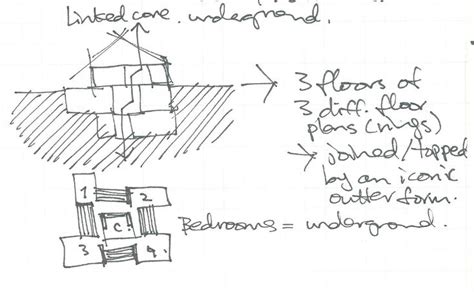 Linked cave. underground.
3 floors of
3 diff. floor
plans (rings)
joined/topped
by an iconic
outter form.
1 2
C
3 4
Bedrooms = underground.